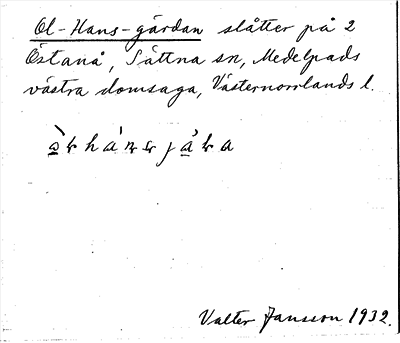 Ol-Hans-gårdan slåtter på 2
Östanå, Sättna sn, Medelpads
västra domsaga, Västernorrlands l.
Valter Jansson 1932.